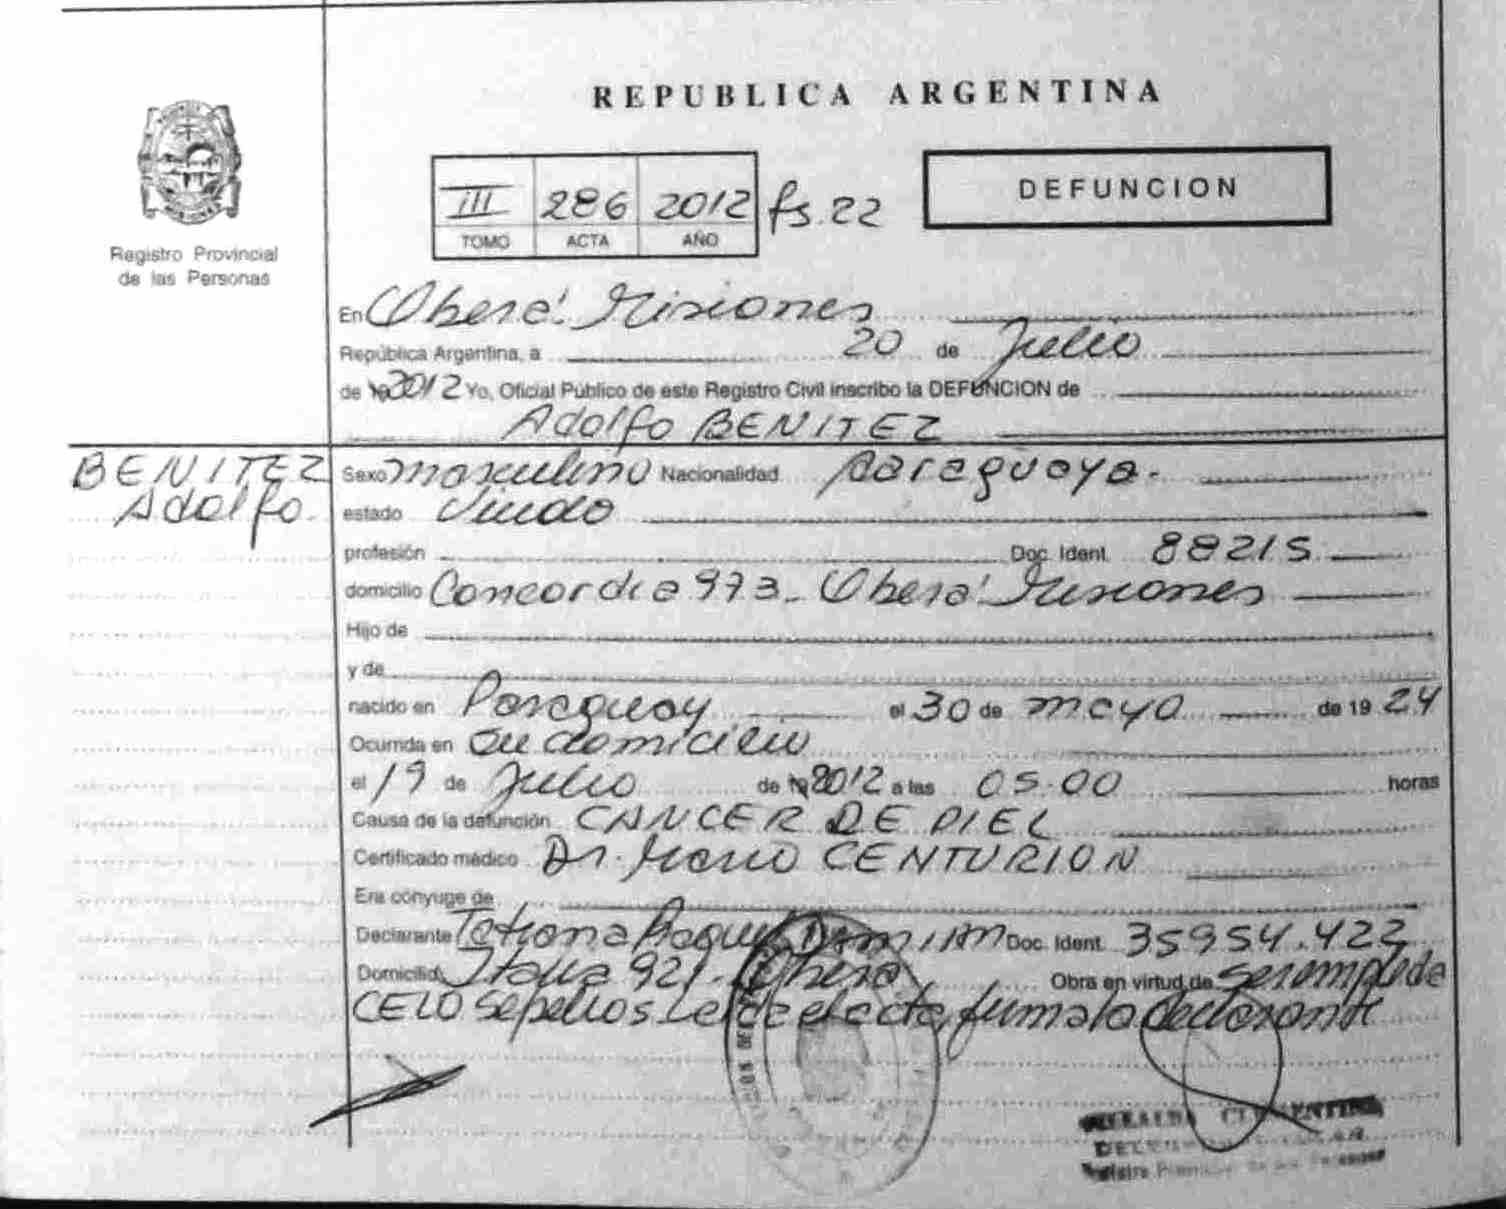 REPUBLICA ARGENTINA
III 286 2012 fs. 22
TOMO ACTA AÑO
DEFUNCION
Registro Provincial
de las Personas
En Oberá. Misiones
República Argentina, a 20 de Julio
de 2012 Yo, Oficial Público de este Registro Civil inscribo la DEFUNCION de
Adolfo BENITEZ
BENITEZ
Adolfo
Sexo masculino Nacionalidad paraguaya.
estado Viudo
profesión Doc. Ident. 88215
domicilio Concordia 973 - Oberá. Misiones
Hijo de
y de
nacido en Paraguay el 30 de mayo de 1924
Ocurrida en su domicilio
el 19 de Julio de 2012 a las 05.00 horas
Causa de la defunción CANCER DE PIEL
Certificado médico Dr. Mario CENTURION
Era cónyuge de
Declarante Tatiana Raquel Doc. Ident. 35954.422
Domicilio Italia 921. Oberá Obra en virtud de ser empl. de
CELO Sepelios Leida el acta, firma la declarante
CLEMENTINA